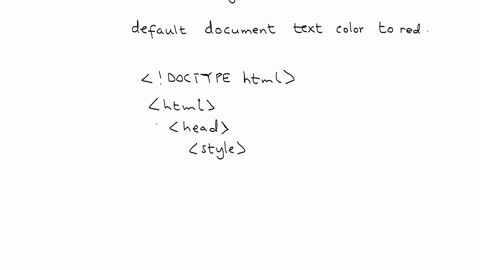 default document text color to red.
<!DOCTYPE html>
<html>
<head>
<style>